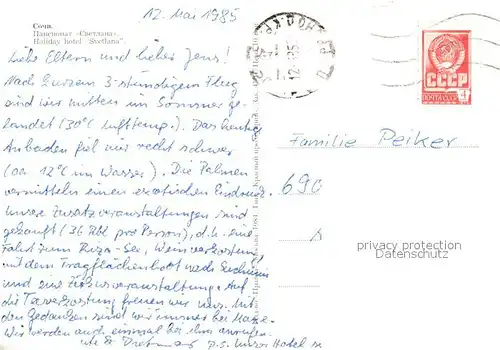 12. Mai 1985
Сочи.
Пансионат «Светлана».
Holiday hotel "Svetlana".
Liebe Eltern und lieber Jens!
Nach kurzem 3-stündigem Flug
sind wir mitten im Sommer ge-
landet (30°C Lufttemp.). Das heutige
Anbaden fiel uns recht schwer
(ca 12°C im Wasser). Die Palmen
vermitteln einen exotischen Eindruck.
Unsere Zusatzveranstaltungen sind
gekauft (36 Rbl pro Person), d.h. eine
Fahrt zum Riza-See, Weinverkostung,
mit dem Tragflächenboot nach Suchumi
und eine Folkloreveranstaltung. Auf
die Teeverkostung freuen wir uns. Mit
den Gedanken sind wir immer bei
Wir werden auch einmal bei ihm anrufen.
Ute & Dietmar P.S. Unser Hotel
СССР
ПОЧТА
4
Familie Peiker
690
privacy protection
Datenschutz